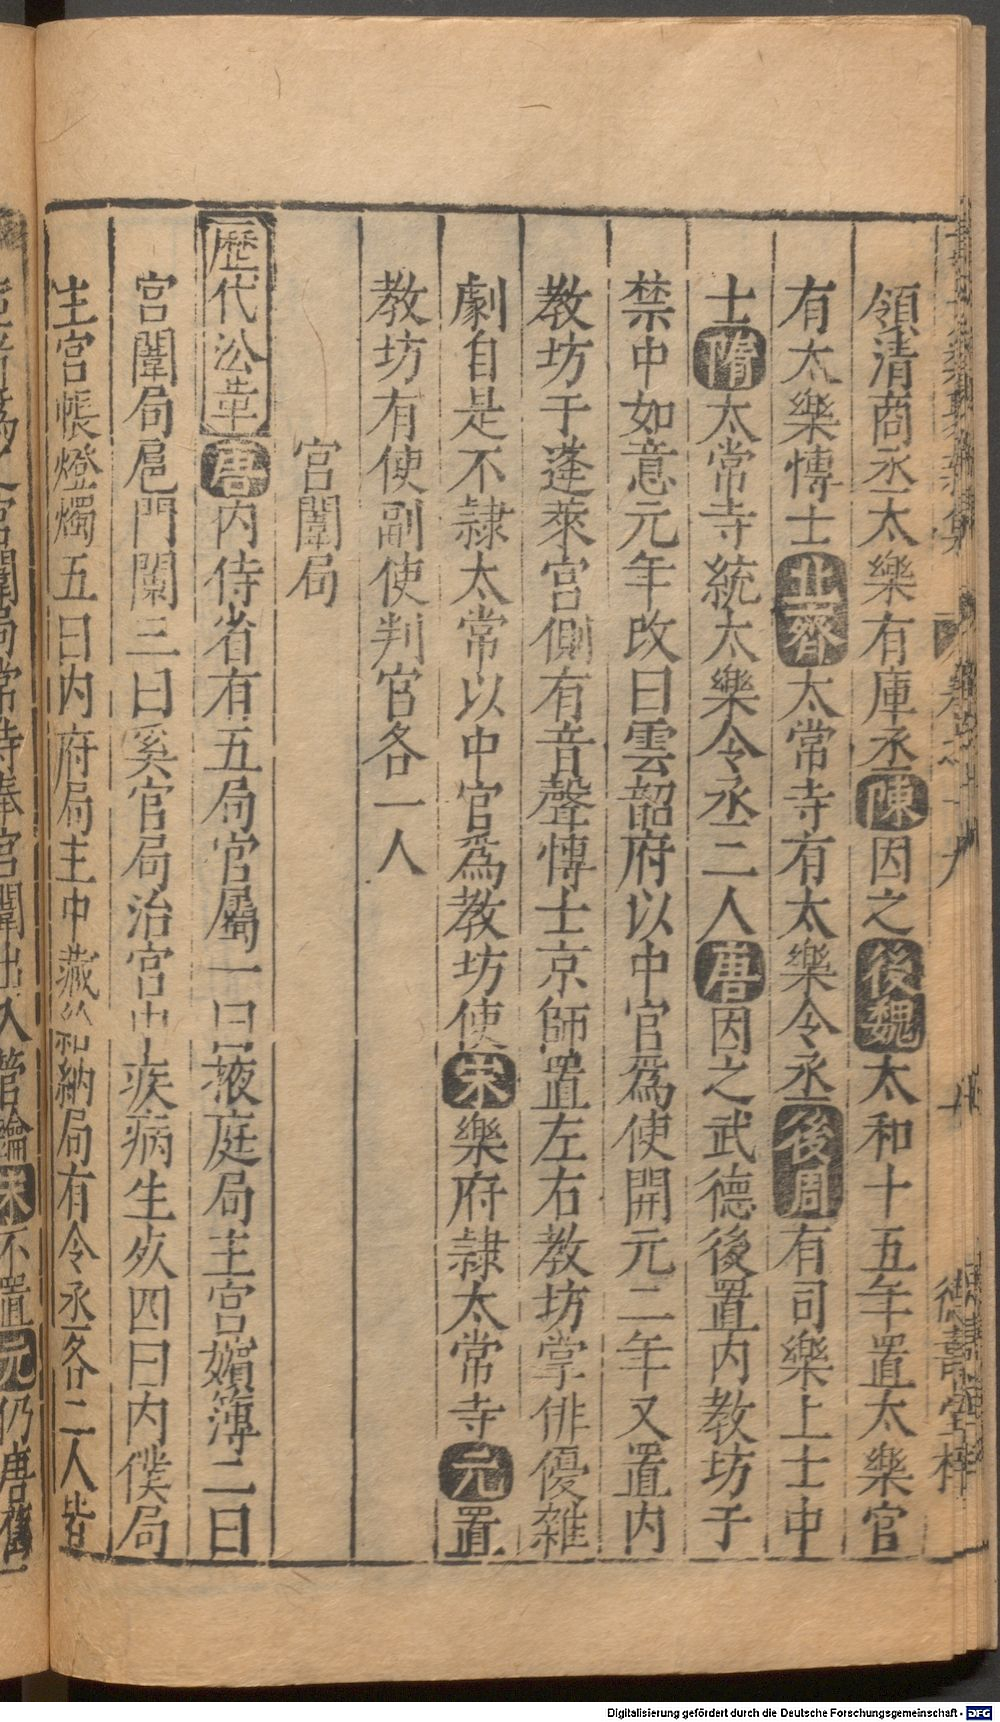 領清商丞太樂有庫丞陳因之後魏太和十五年置太樂官
有太樂愽士北齊太常寺有太樂令丞後周有司樂上士中
士隋太常寺統太樂令丞二人唐因之武德後置内教坊于
禁中如意元年改曰雲韶府以中官爲使開元二年又置内
教坊于蓬萊宫側有音聲愽士京師置左右教坊掌俳優雜
劇自是不隷太常以中官爲教坊使宋樂府隷太常寺元置
教坊有使副使判官各一人
宫闈局
歷代沿革唐内侍省有五局官屬一曰掖庭局主宫嬪簿二曰
宫闈局扈門闌三曰奚官局治宫中疾病生死四曰内僕局
主宫帳燈燭五曰内府局主中藏給納局有令丞各二人皆
宫闈局常侍奉宫闈出入管鑰宋不置元仍唐舊
德壽堂梓
Digitalisierung gefördert durch die Deutsche Forschungsgemeinschaft - DFG